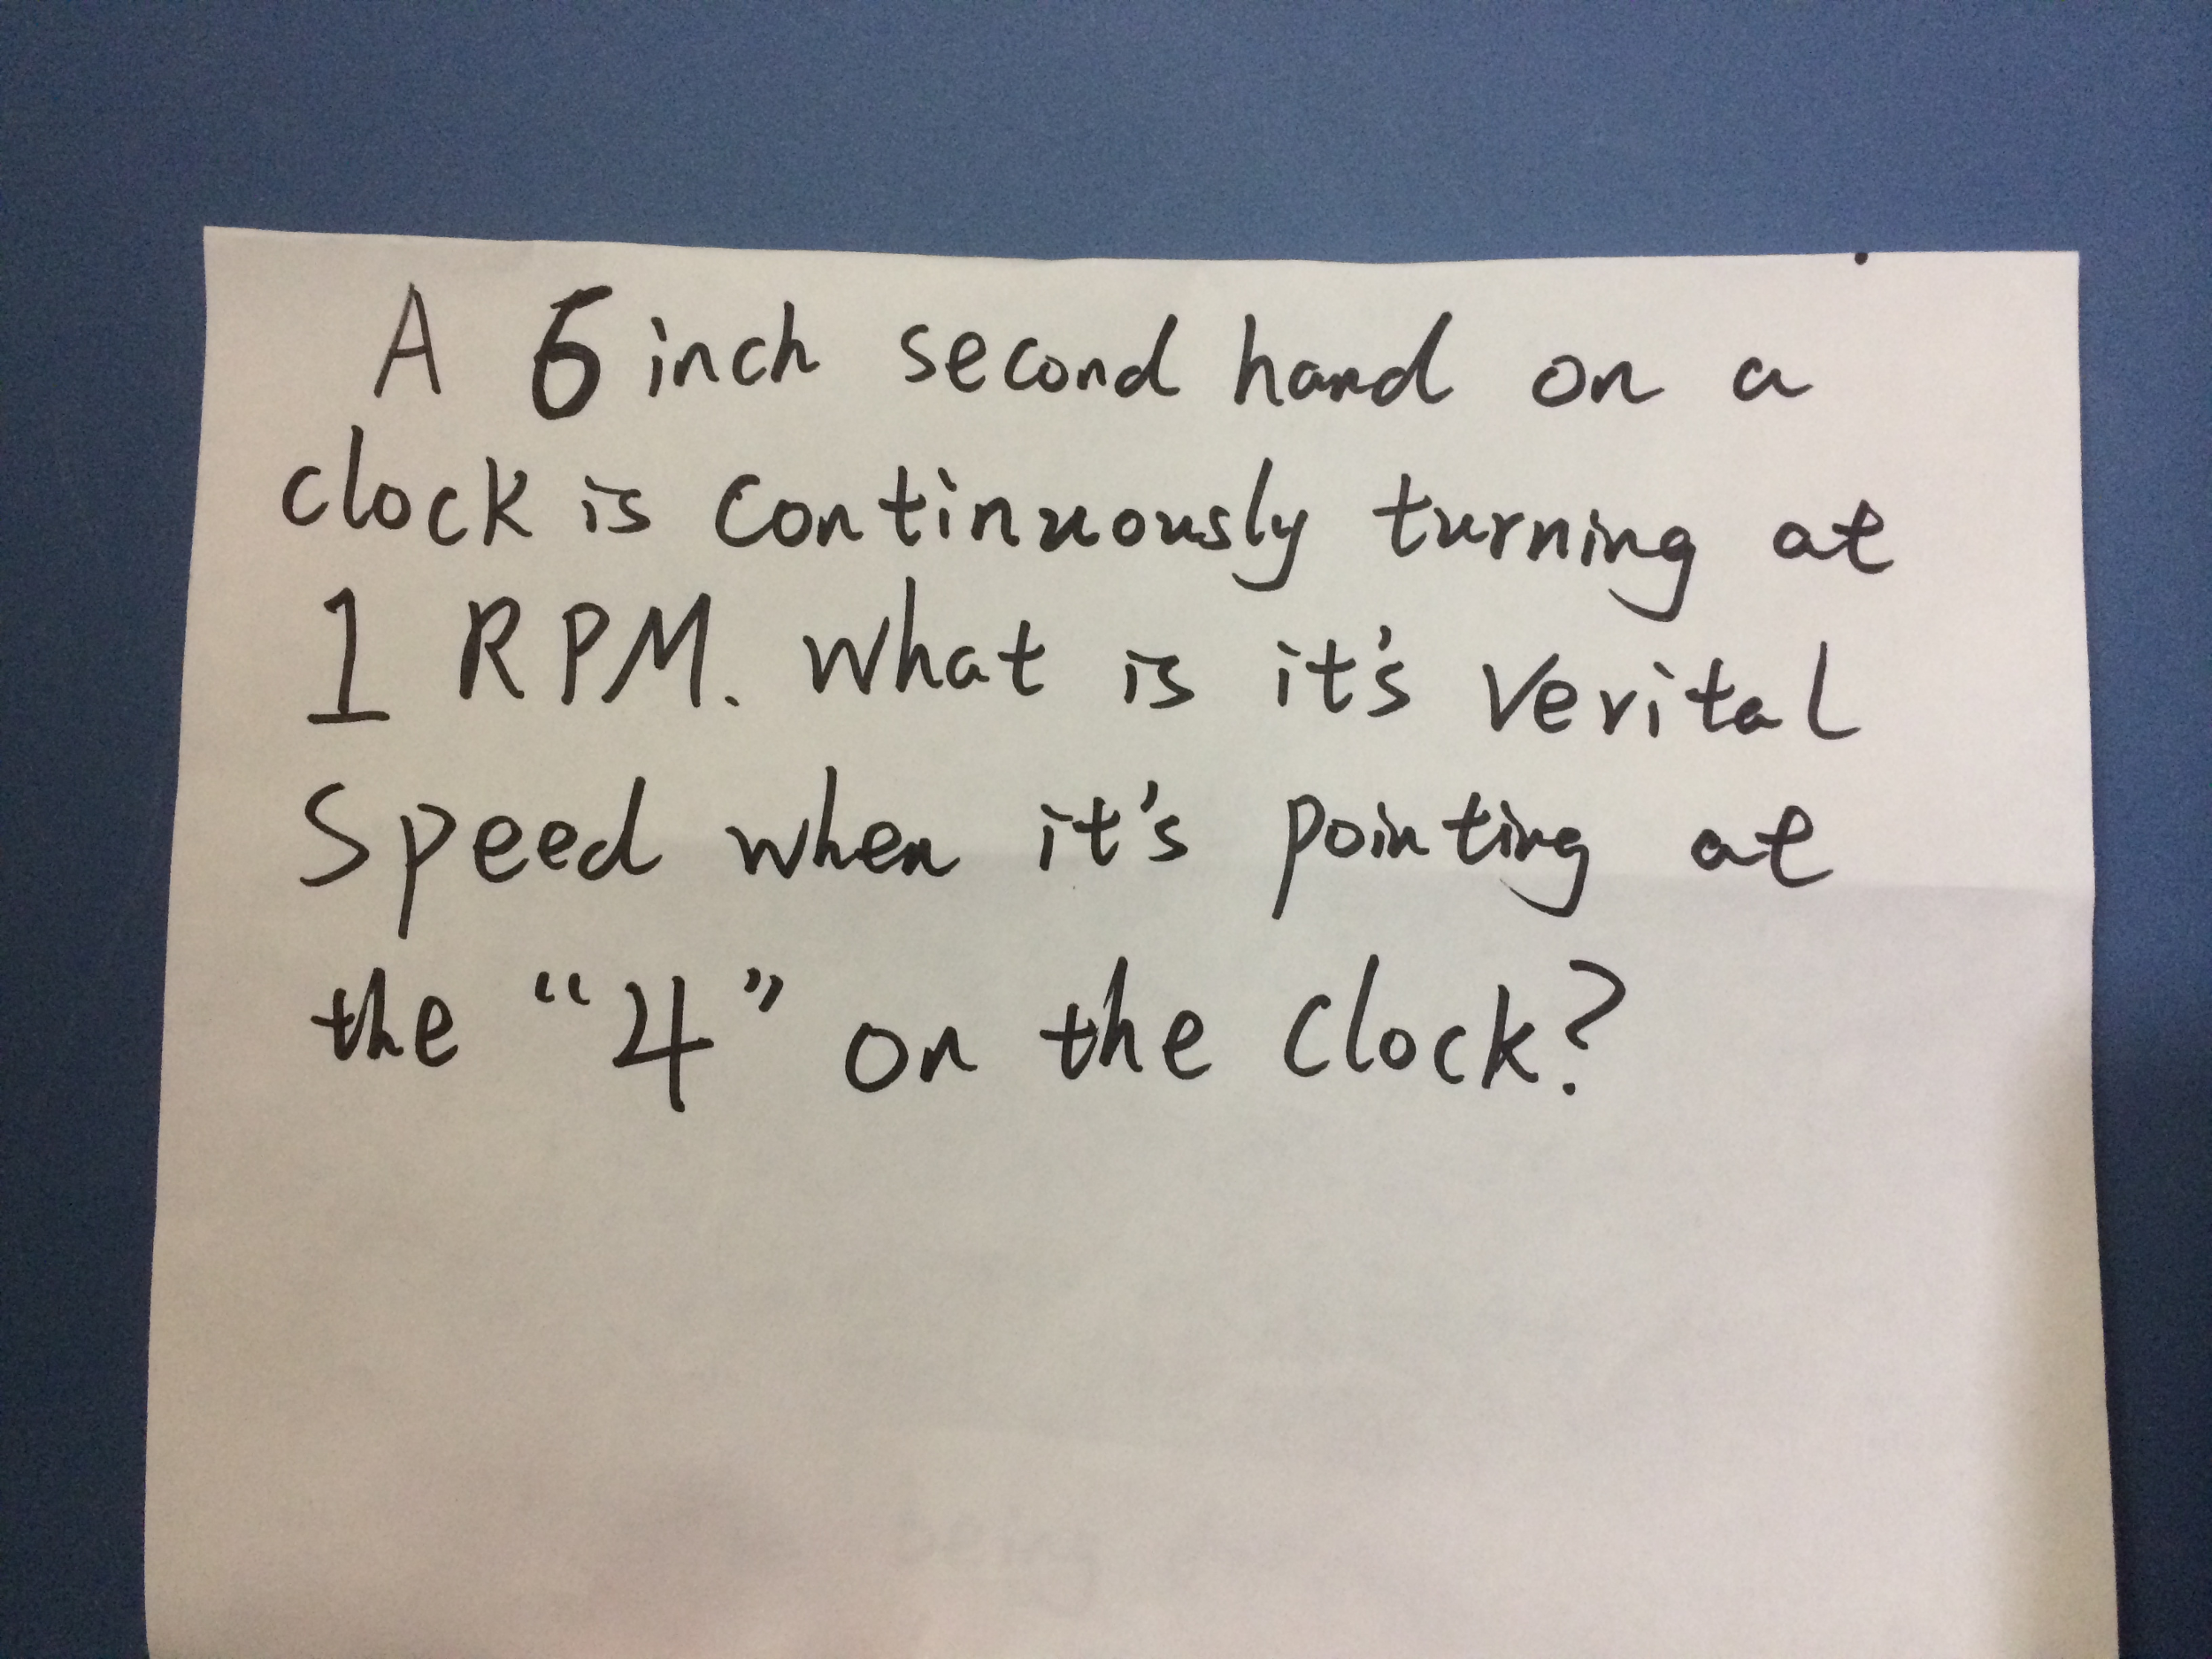 A 6 inch second hand on a
clock is continuously turning at
1 RPM. What is it's verital
Speed when it's pointing at
the "4" on the clock?